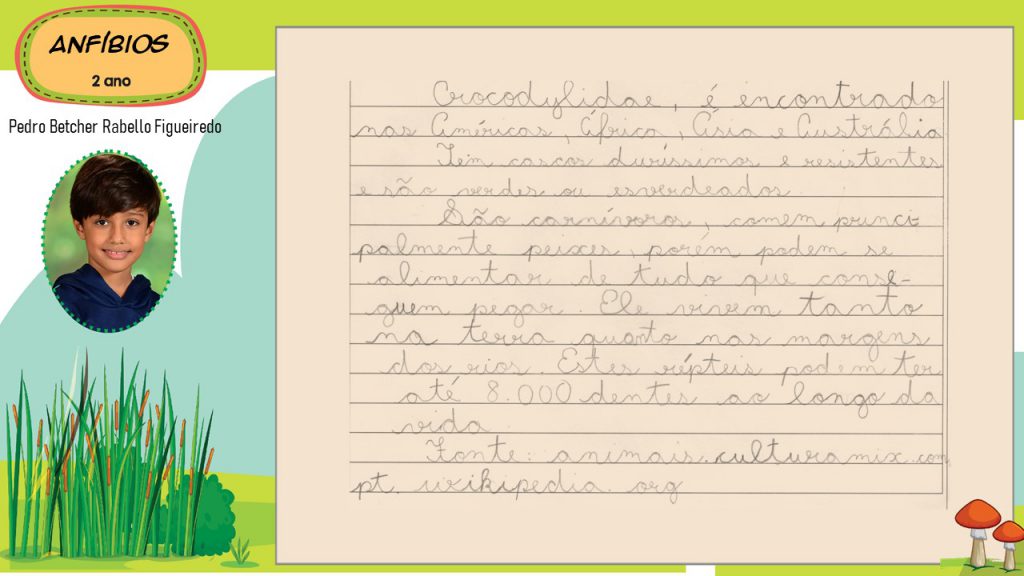 ANFÍBIOS
2 ano
Pedro Betcher Rabello Figueiredo
Crocodylidae, é encontrado
nas Américas, África, Ásia e Austrália
Tem cascos duríssimos e resistentes
e são verdes ou esverdeados.
São carnívoros, comem princi
palmente peixes, porém podem se
alimentar de tudo que conse-
guem pegar. Ele vivem tanto
na terra quanto nas margens
dos rios. Estes répteis podem ter
até 8.000 dentes ao longo da
vida.
Fonte: animais.culturamix.com
pt.wikipedia.org